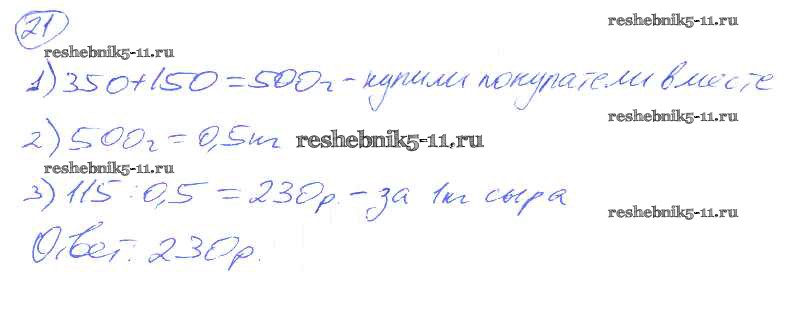 21
reshebnik5-11.ru
reshebnik5-11.ru
1) 350+150=500г - купили покупатели вместе
reshebnik5-11.ru
2) 500г = 0,5кг reshebnik5-11.ru
reshebnik5-11.ru
3) 115 : 0,5 = 230р. - за 1кг сыра
reshebnik5-11.ru
Ответ: 230р.